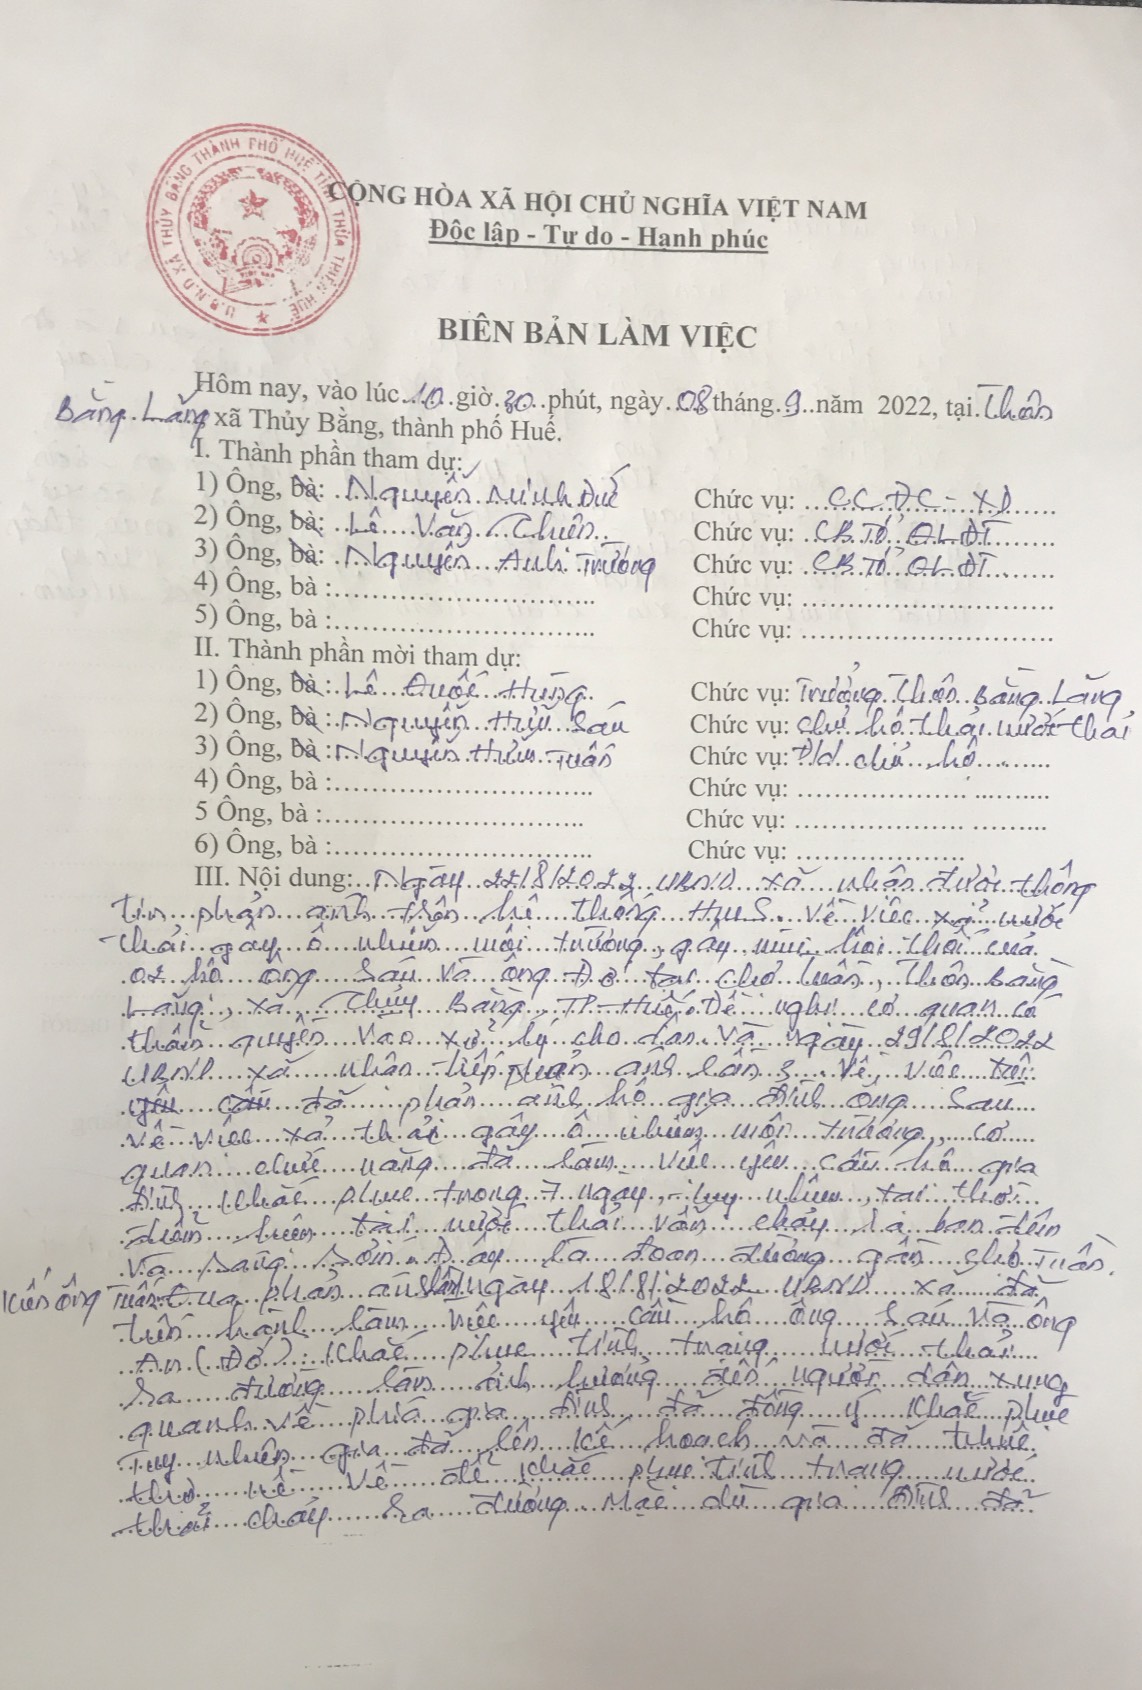 U.B.N.D XÃ THỦY BẰNG THÀNH PHỐ HUẾ TỈNH THỪA THIÊN HUẾ
CỘNG HÒA XÃ HỘI CHỦ NGHĨA VIỆT NAM
Độc lập - Tự do - Hạnh phúc
BIÊN BẢN LÀM VIỆC
Hôm nay, vào lúc 10 giờ 30 phút, ngày 08 tháng 9 năm 2022, tại Thôn
Bằng Lãng xã Thủy Bằng, thành phố Huế.
I. Thành phần tham dự:
1) Ông, bà: Nguyễn Minh Đức Chức vụ: CC ĐC - XD
2) Ông, bà: Lê Văn Chức vụ: CB Tổ QLĐT
3) Ông, bà: Nguyễn Anh Trường Chức vụ: CB Tổ QLĐT
4) Ông, bà : Chức vụ:
5) Ông, bà : Chức vụ:
II. Thành phần mời tham dự:
1) Ông, bà : Lê Quốc Hùng Chức vụ: Trưởng Thôn Bằng Lãng
2) Ông, bà : Nguyễn Hữu Sáu Chức vụ: chủ hộ thải nước thải
3) Ông, bà : Nguyễn Hữu Tuấn Chức vụ: Đ/d chủ hộ
4) Ông, bà : Chức vụ:
5 Ông, bà : Chức vụ:
6) Ông, bà : Chức vụ:
III. Nội dung: Ngày 22/8/2022 UBND xã nhận được thông
tin phản ánh trên hệ thống HueS về việc xả nước
thải gây ô nhiễm môi trường, gây mùi hôi thối của
02 hộ ông Sáu và ông Đợ tại chợ tuần, Thôn Bằng
Lãng, xã Thủy Bằng, TP Huế. Đề nghị cơ quan có
thẩm quyền vào xử lý cho dân. Và ngày 29/8/2022
UBND xã nhận tiếp phản ánh lần 3 về việc tôi
đã phản ánh hộ gia đình ông Sáu
về việc xả thải gây ô nhiễm môi trường, cơ
quan chức năng đã làm việc yêu cầu hộ gia
đình khắc phục trong 7 ngày, tuy nhiên, tại thời
điểm hiện tại nước thải vẫn chảy ban đêm
và sáng sớm. Đây là đoạn đường gần chợ Tuần.
Qua phản ánh ngày 18/8/2022 UBND xã đã
tiến hành làm việc yêu cầu hộ ông Sáu và ông
An (Đợ) khắc phục tình trạng nước thải
ra đường làm ảnh hưởng đến người dân xung
quanh về phía gia đình đã đồng ý khắc phục
Tuy nhiên gia đã lên kế hoạch và đã thuê
thợ về để khắc phục tình trạng nước
thải chảy ra đường mặc dù gia đình đã